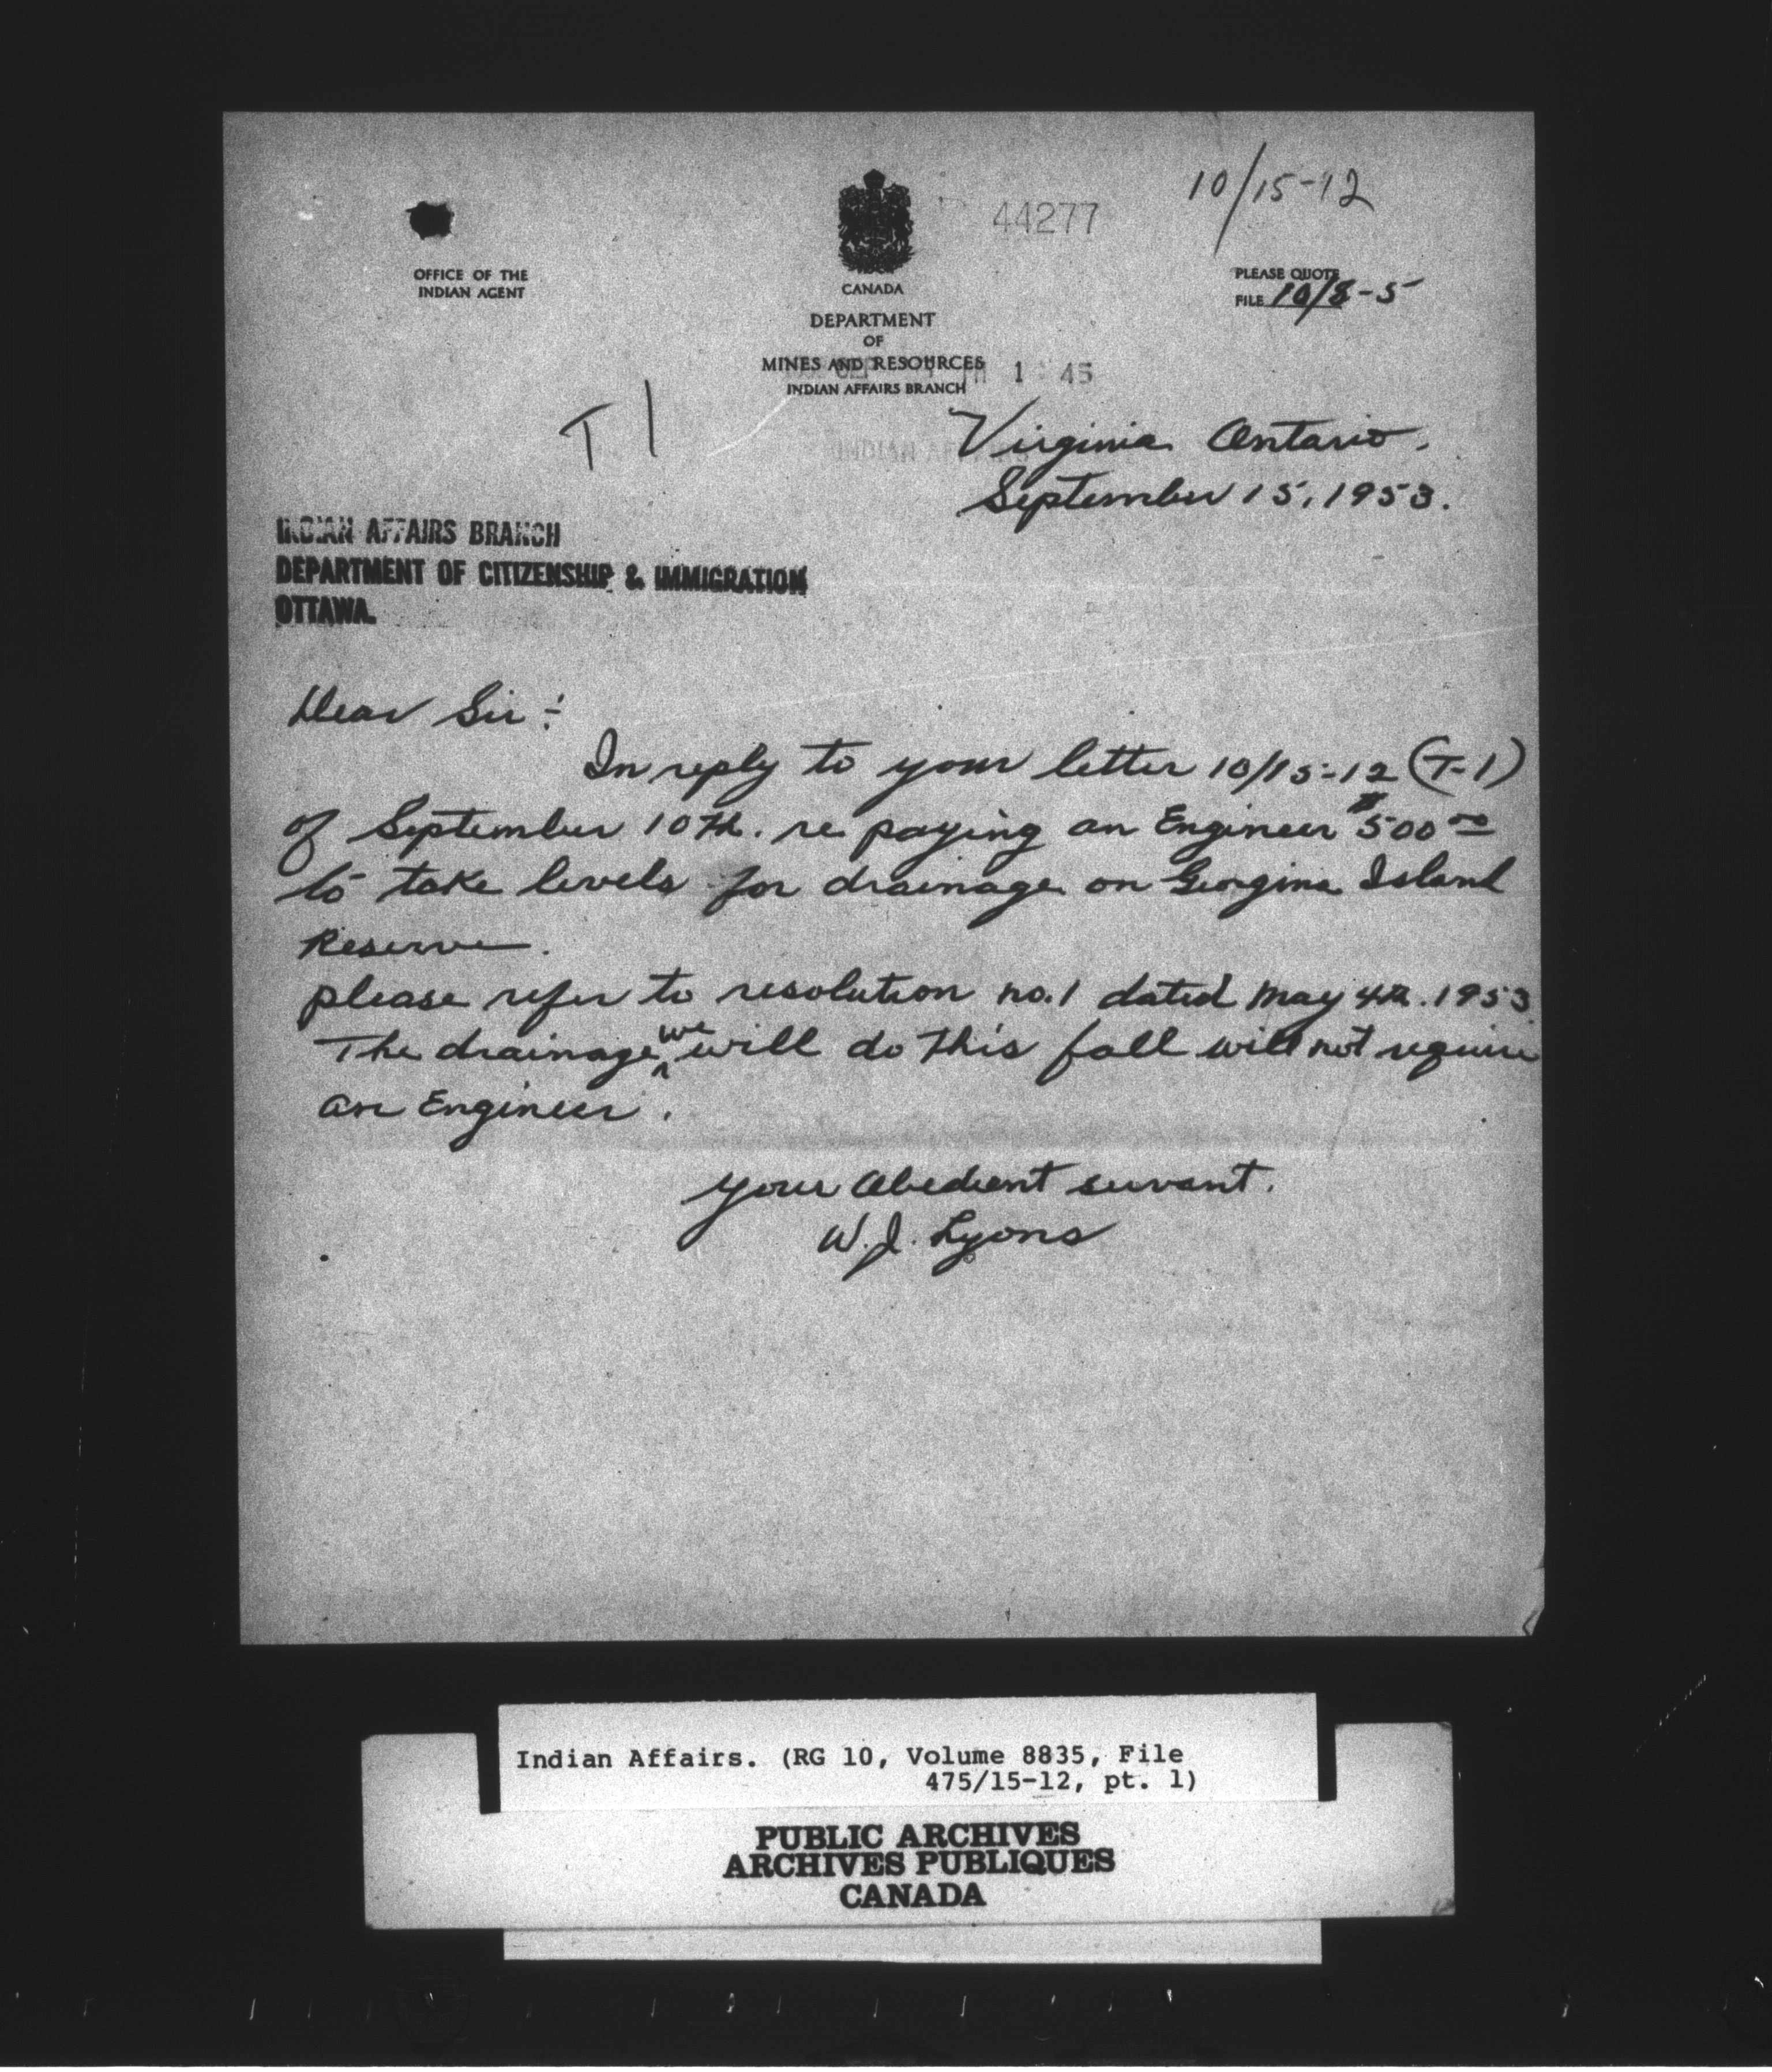 10/15-12
44277
OFFICE OF THE
INDIAN AGENT
CANADA
DEPARTMENT
OF
MINES AND RESOURCES
INDIAN AFFAIRS BRANCH
PLEASE QUOTE
FILE 10/8-5
1 45
T 1
Virginia Ontario.
September 15, 1953.
INDIAN AFFAIRS BRANCH
DEPARTMENT OF CITIZENSHIP & IMMIGRATION
OTTAWA.
Dear Sir:-
In reply to your letter 10/15-12 (T-1)
of September 10th. re paying an Engineer $500 00
to take levels for drainage on Georgina Island
Reserve.
please refer to resolution no. 1 dated May 4th. 1953
The drainage we will do this fall will not require
an Engineer.
your Obedient servant.
W. J. Lyons
Indian Affairs. (RG 10, Volume 8835, File
475/15-12, pt. 1)
PUBLIC ARCHIVES
ARCHIVES PUBLIQUES
CANADA